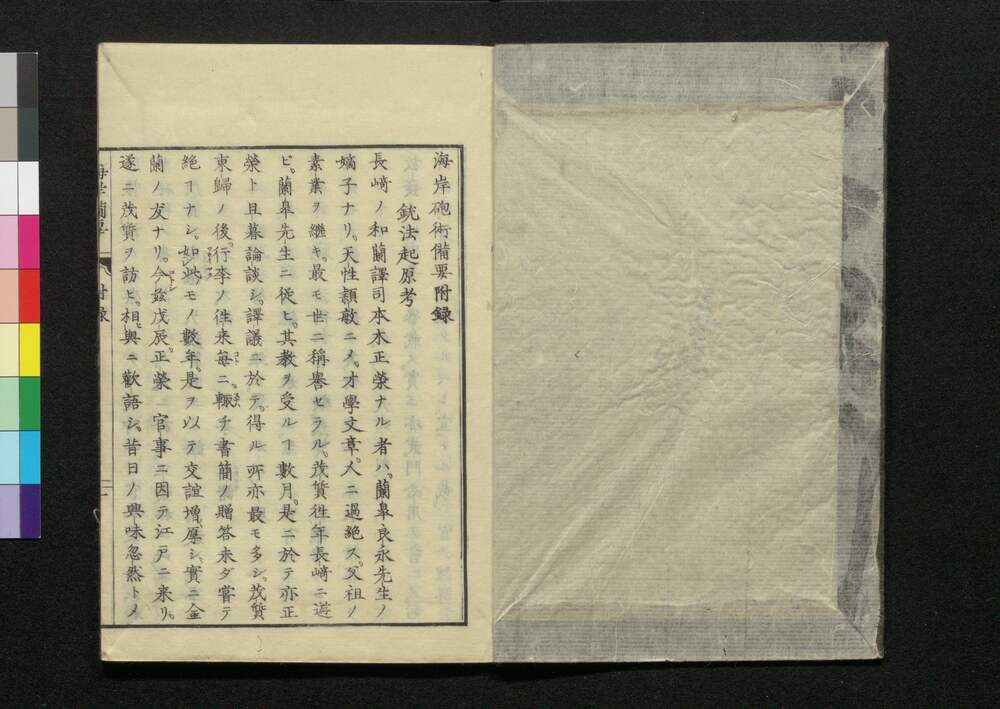 海岸砲術備要附録
銃法起原考
長崎ノ和蘭譯司本木正榮ナル者ハ。蘭皐良永先生ノ
嫡子ナリ。天性頴敏ニメ。才學文章。人ニ過絶ス。父祖ノ
素業ヲ繼キ。最モ世ニ稱譽セラル。茂質往年長崎ニ遊
ビ。蘭皐先生ニ從ヒ。其教ヲ受ルヿ數月。是ニ於テ亦正
榮ト旦暮論談シ。譯議ニ於テ。得ル所亦最モ多シ。茂質
東歸ノ後。行李ノ往来毎ニ。輙チ書簡ノ贈答未ダ嘗テ
絶ヿナシ。如此モノ數年。是ヲ以テ交誼増厚シ。實ニ金
蘭ノ友ナリ。今玆戊辰。正榮ニ官事ニ因テ江戸ニ来リ。
遂ニ茂質ヲ訪ヒ。相與ニ歡語シ。昔日ノ興味忽然トメ
附録